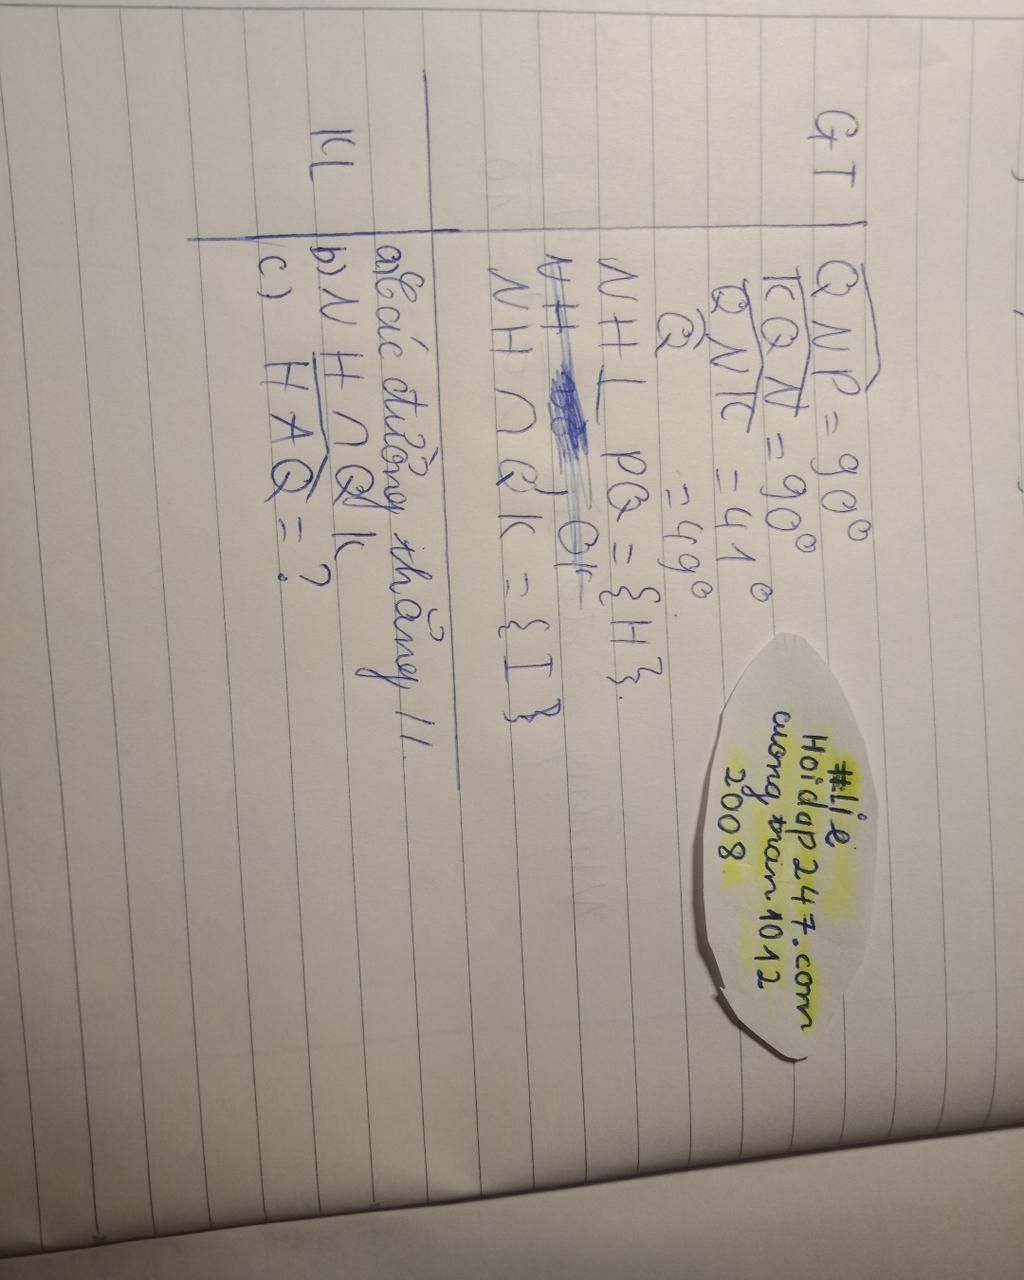 GT
QNP = 90°
KQN = 90°
QNK = 41°
Q̂ = 49°
NH ⊥ PQ = {H}.
NH
NH ∩ QK = {I}
KL
a) Các đường thẳng //
b) NH ∩ QK
c) HAQ = ?
#Lie
Hoidap247.com
cuongtran1012
2008